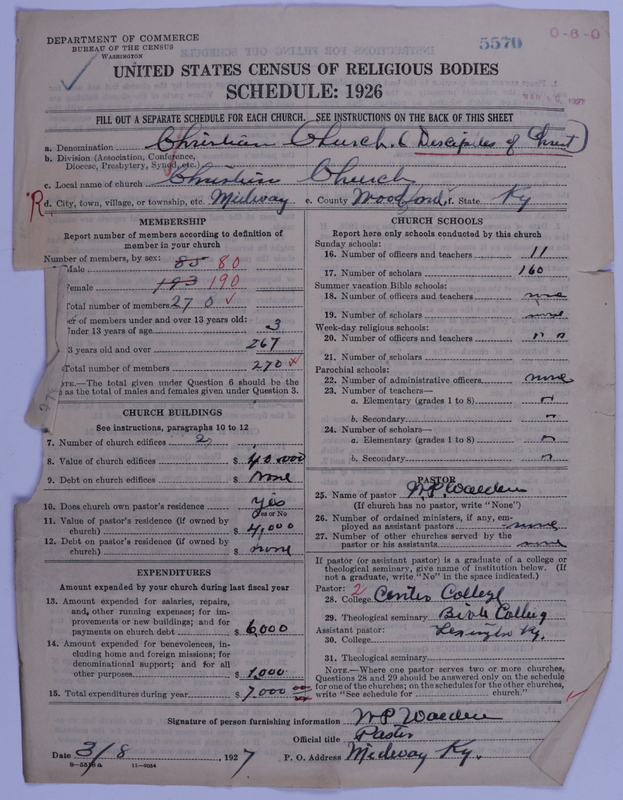 DEPARTMENT OF COMMERCE
BUREAU OF THE CENSUS
WASHINGTON
5570
0-6-0
UNITED STATES CENSUS OF RELIGIOUS BODIES
SCHEDULE: 1926
FILL OUT A SEPARATE SCHEDULE FOR EACH CHURCH. SEE INSTRUCTIONS ON THE BACK OF THIS SHEET
a. Denomination Christian Church. (Disciples of Christ)
b. Division (Association, Conference,
Diocese, Presbytery, Synod, etc.)
c. Local name of church Christian Church
R
d. City, town, village, or township, etc. Midway e. County Woodford f. State Ky
MEMBERSHIP
Report number of members according to definition of
member in your church
Number of members, by sex:
male 85 80
emale 183 190
Total number of members 270 ✓
er of members under and over 13 years old:
nder 13 years of age 3
3 years old and over 267
Total number of members 270
OTE.—The total given under Question 6 should be the
as the total of males and females given under Question 3.
CHURCH BUILDINGS
See instructions, paragraphs 10 to 12
7. Number of church edifices 2
8. Value of church edifices $ 40.000
9. Debt on church edifices $ None
10. Does church own pastor's residence Yes
Yes or No
11. Value of pastor's residence (if owned by
church) $ 4,000
12. Debt on pastor's residence (if owned by
church) $ none
EXPENDITURES
Amount expended by your church during last fiscal year
13. Amount expended for salaries, repairs,
and, other running expenses; for im-
provements or new buildings; and for
payments on church debt $ 6,000
14. Amount expended for benevolences, in-
cluding home and foreign missions; for
denominational support; and for all
other purposes $ 1.000
15. Total expenditures during year $ 7.000
CHURCH SCHOOLS
Report here only schools conducted by this church
Sunday schools:
16. Number of officers and teachers 11
17. Number of scholars 160
Summer vacation Bible schools:
18. Number of officers and teachers none
19. Number of scholars none
Week-day religious schools:
20. Number of officers and teachers " "
21. Number of scholars
Parochial schools:
22. Number of administrative officers none
23. Number of teachers—
a. Elementary (grades 1 to 8) "
b. Secondary "
24. Number of scholars—
a. Elementary (grades 1 to 8) "
b. Secondary "
PASTOR
25. Name of pastor W.P. Walden
(If church has no pastor, write "None")
26. Number of ordained ministers, if any, em-
ployed as assistant pastors none
27. Number of other churches served by the
pastor or his assistants none
If pastor (or assistant pastor) is a graduate of a college or
theological seminary, give name of institution below. (If
not a graduate, write "No" in the space indicated.)
Pastor: 2
28. College Centre College
29. Theological seminary Bible College
Assistant pastor: Lexington Ky.
30. College
31. Theological seminary
NOTE.—Where one pastor serves two or more churches,
Questions 28 and 29 should be answered only on the schedule
for one of the churches; on the schedules for the other churches,
write "See schedule for church."
Signature of person furnishing information W.P. Walden
Official title Pastor
Date 3/8, 1927 P. O. Address Midway Ky.
8-5518a 11-9034